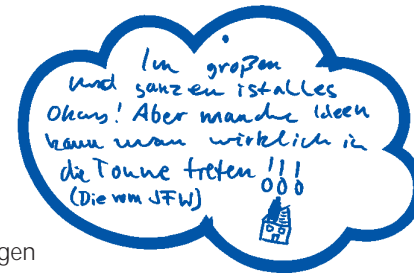 Im großen
und ganzen ist alles
Okay! Aber manche Ideen
kann man wirklich in
die Tonne treten!!!
(Die vom JFW)
gen